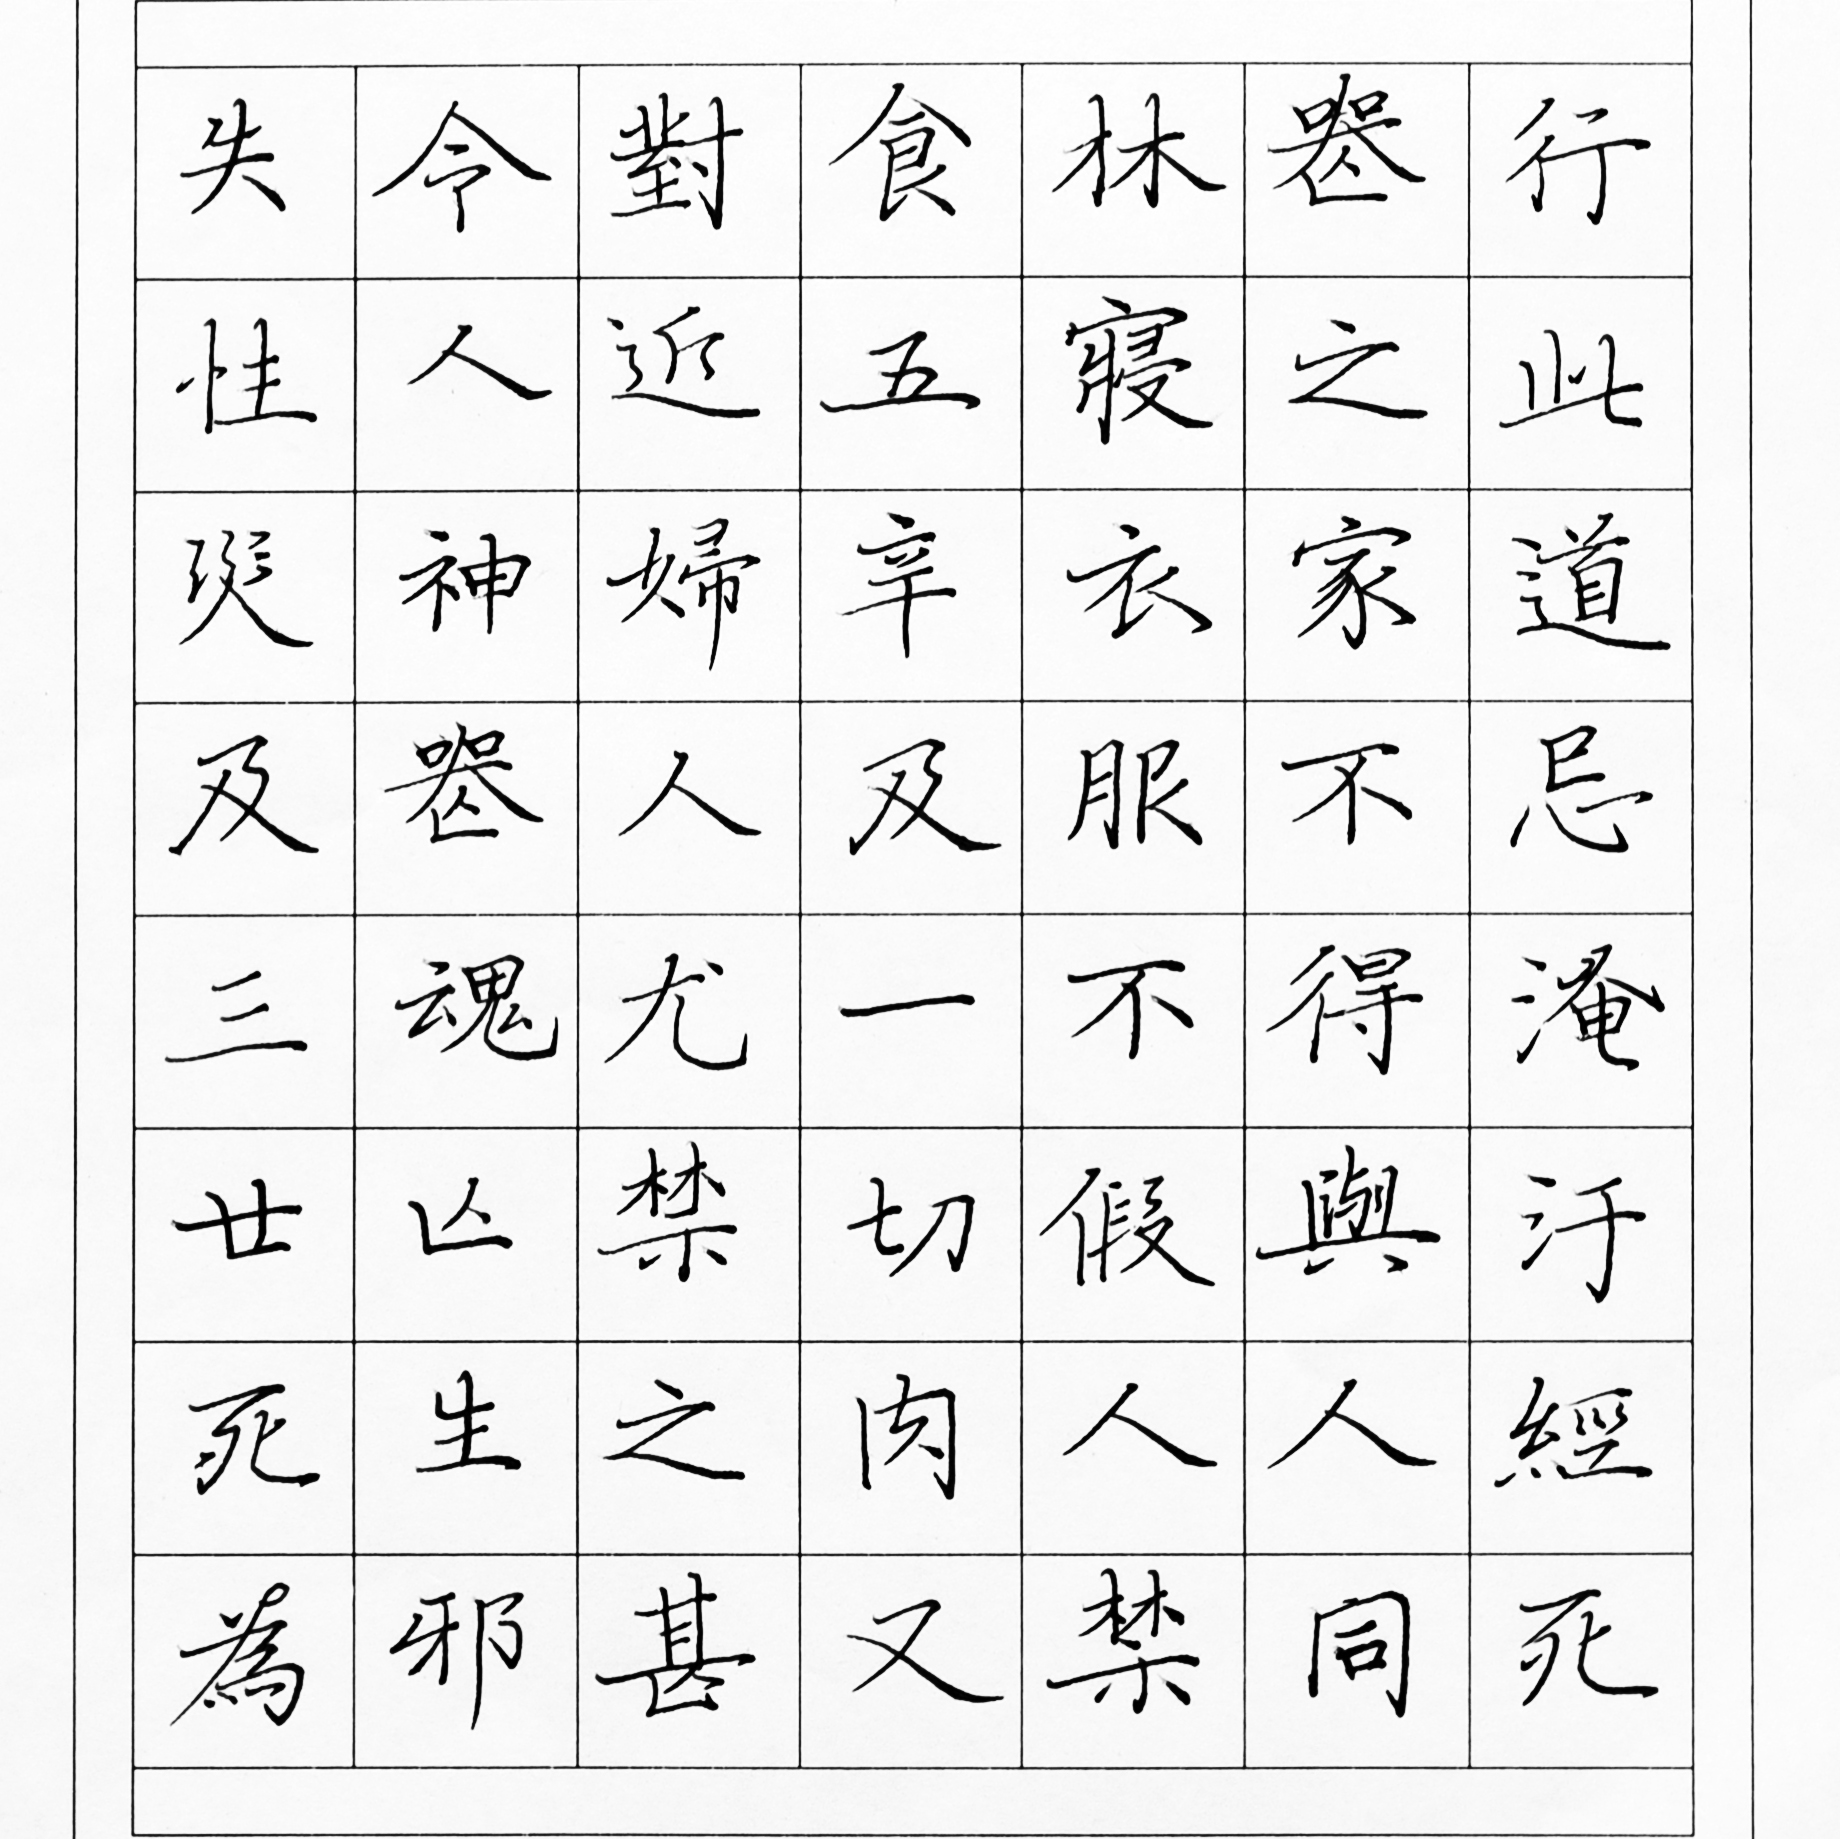 行此道忌淹汙經死
喪之家不得與人同
牀寢衣服不假人禁
食五辛及一切肉又
對近婦人尤禁之甚
令人神喪魂亡生邪
失性災及三世死為